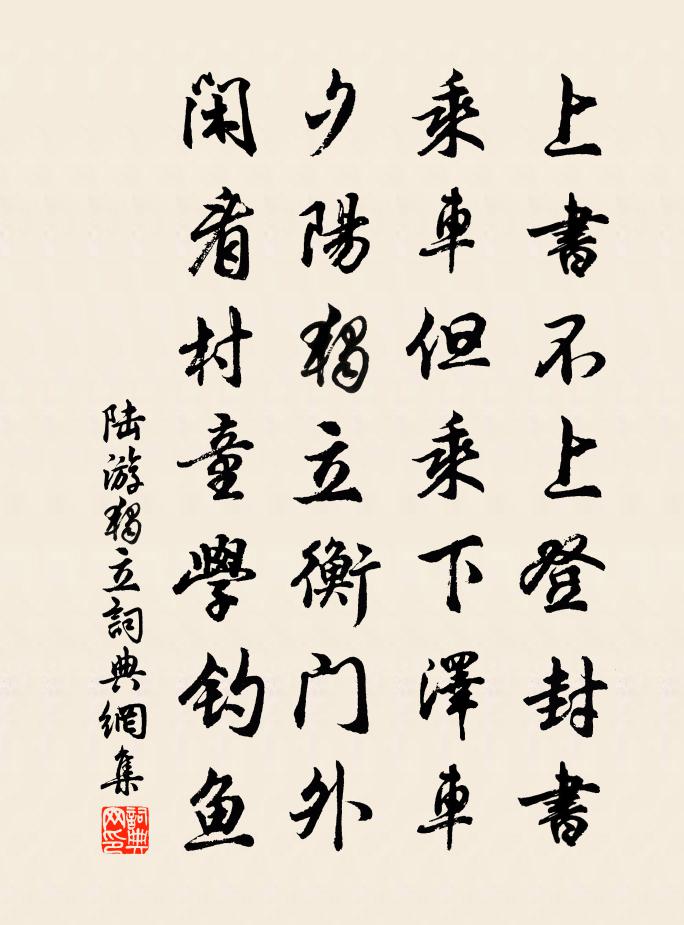 上書不上登封書
乘車但乘下澤車
夕陽獨立衡门外
闲看村童學钓鱼
陆游獨立詞典網集
詞典网印